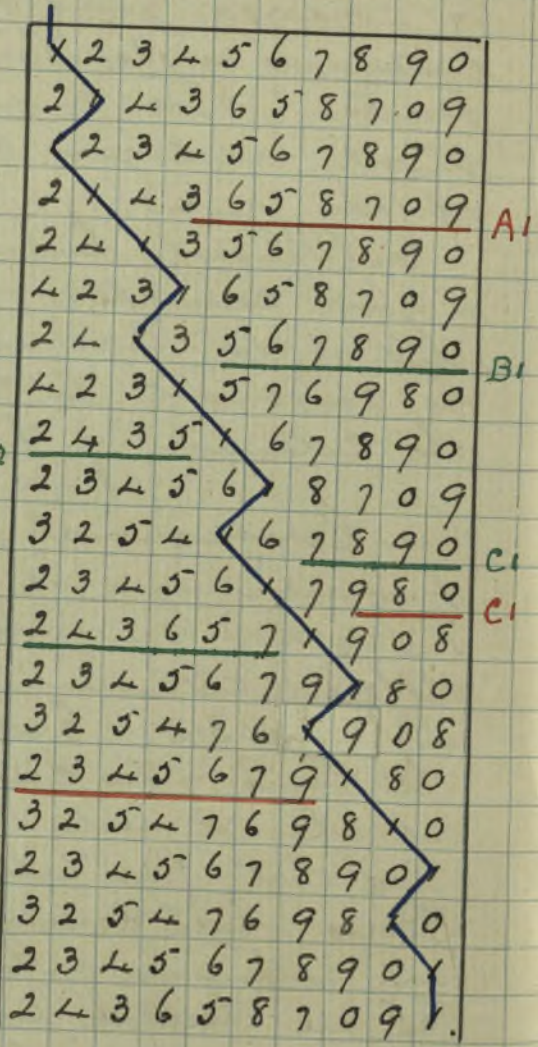 1 2 3 4 5 6 7 8 9 0
2 1 4 3 6 5 8 7 0 9
2 3 4 5 6 7 8 9 0
2 1 4 3 6 5 8 7 0 9 A1
2 4 1 3 5 6 7 8 9 0
4 2 3 1 6 5 8 7 0 9
2 4 3 5 6 7 8 9 0 B1
4 2 3 1 5 7 6 9 8 0
2 4 3 5 1 6 7 8 9 0
2 3 4 5 6 1 8 7 0 9
3 2 5 4 1 6 7 8 9 0 C1
2 3 4 5 6 1 7 9 8 0 C1
2 4 3 6 5 7 1 9 0 8
2 3 4 5 6 7 9 1 8 0
3 2 5 4 7 6 1 9 0 8
2 3 4 5 6 7 9 1 8 0
3 2 5 4 7 6 9 8 1 0
2 3 4 5 6 7 8 9 0 1
3 2 5 4 7 6 9 8 1 0
2 3 4 5 6 7 8 9 0 1
2 4 3 6 5 8 7 0 9 1.